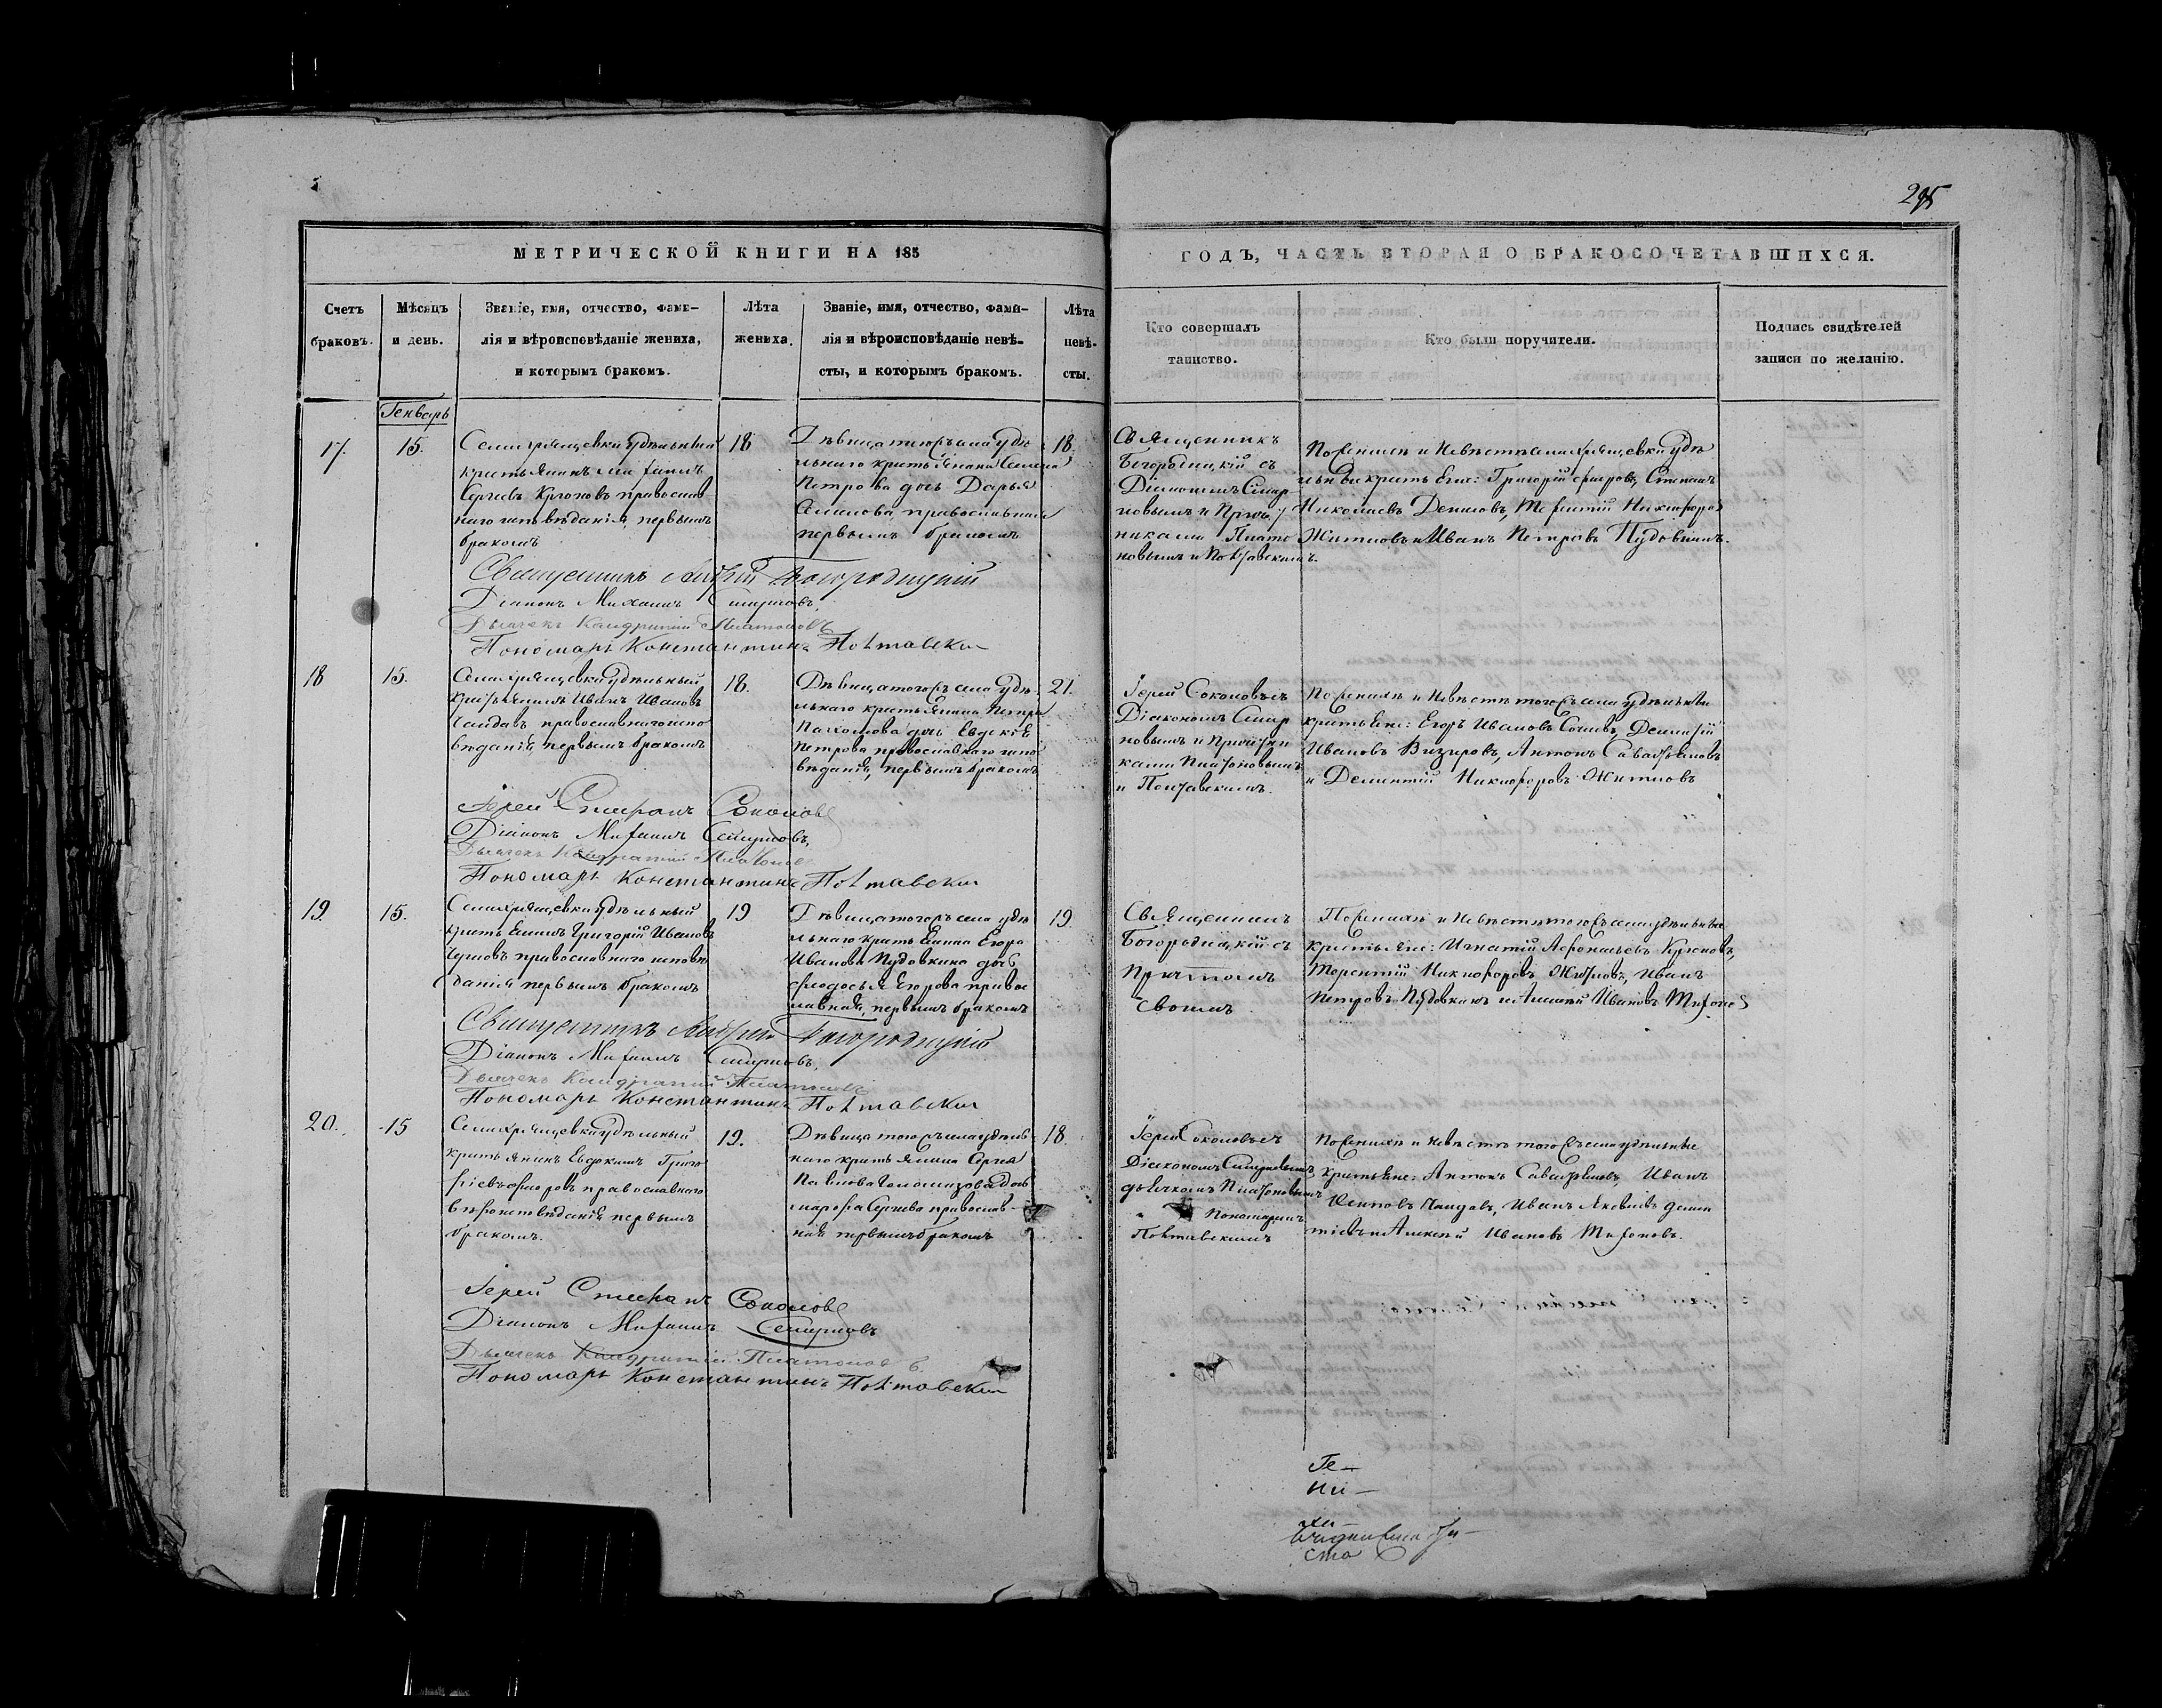 295
МЕТРИЧЕСКОЙ КНИГИ НА 185
ГОДЪ, ЧАСТЬ ВТОРАЯ О БРАКОСОЧЕТАВШИХСЯ.
Счетъ
браковъ.
Мѣсяцъ
и день.
Званіе, имя, отчество, фами-
лія и вѣроисповѣданіе жениха,
и которымъ бракомъ.
Лѣта
жениха.
Званіе, имя, отчество, фами-
лія и вѣроисповѣданіе невѣ-
сты, и которымъ бракомъ.
Лѣта
невѣ-
сты.
Кто совершалъ
таинство.
Кто были поручители.
Подпись свидѣтелей
записи по желанію.
Генварь
17.
15.
Села Хрящевки удѣльный
крестьянинъ Михаилъ
Сергѣевъ Крюковъ православ
наго исповѣданія, первымъ
бракомъ
18
Дѣвица того съ села удѣ
льнаго крестьянина Семена
Петрова дочь Дарья
Семенова, православная
первымъ бракомъ
18.
Священникъ
Богородицкій съ
Діакономъ Смир
новымъ и Причет
никами Плато
новымъ и Полтавскимъ.
По женихѣ и невѣстѣ села Хрящевки удѣ
льные крестьяне: Григорій Степанъ
Николаевъ Денисовъ, Терентій Никифоровъ
Житловъ и Иванъ Петровъ Пудовкинъ.
Священникъ Андрей Богородицкій
Діаконъ Михаилъ Смирновъ,
Дьячекъ Кандратій Платоновъ
Пономарь Константинъ Полтавски
18
15.
Села Хрящевки удѣльный
крестьянинъ Иванъ Ивановъ
православнаго испо
вѣданія, первымъ бракомъ
18.
Дѣвица того съ села удѣ
льнаго крестьянина Петра
Пахомова дочь Евдокія
Петрова православнаго испо
вѣданія, первымъ бракомъ
21.
Іерей Соколовъ съ
Діакономъ Смир
новымъ и Причетни
ками Платоновымъ
и Полтавскимъ.
По женихѣ и невѣстѣ того съ села удѣльные
крестьяне: Егоръ Ивановъ Дементій
Ивановъ Антонъ Савастьяновъ
и Дементій Никифоровъ Житловъ
Іерей Стефанъ Соколовъ
Діаконъ Михаилъ Смирновъ,
Дьячекъ Кандратій Платоновъ
Пономарь Константинъ Полтавски
19
15.
Села Хрящевки удѣльный
крестьянинъ Григорій Ивановъ
православнаго исповѣ
данія первымъ бракомъ
19
Дѣвица того съ села удѣ
льнаго крестьянина Егора
Иванова Пудовкина дочь
Феодосья Егорова правос
лавная, первымъ бракомъ
19.
Священникъ
Богородицкій съ
Причтомъ
своимъ
По женихѣ и невѣстѣ того съ села удѣльные
крестьяне: Игнатій Афонасьевъ Крюковъ,
Терентій Никифоровъ Житловъ, Иванъ
Петровъ Пудовкинъ и Алексѣй Ивановъ Тифоновъ
Священникъ Андрей Богородицкій
Діаконъ Михаилъ Смирновъ,
Дьячекъ Кандратій Платоновъ
Пономарь Константинъ Полтавски
20.
15
Села Хрящевки удѣльный
крестьянинъ Евдокимъ Григо
рьевъ православнаго
вѣроисповѣданія первымъ
бракомъ.
19.
Дѣвица того съ села удѣль
наго крестьянина Сергѣя
Павлова дочь
Марфа Сергѣева православ
ная первымъ бракомъ
18.
Іерей Соколовъ съ
Діакономъ Смирновымъ
дьячкомъ Платоновымъ
Пономаремъ
Полтавскимъ
По женихѣ и невѣстѣ того съ села удѣльные
крестьяне: Антонъ Савастьяновъ, Иванъ
Иванъ Яковлевъ Демен
тіевъ и Алексѣй Ивановъ Тифоновъ.
Іерей Стефанъ Соколовъ
Діаконъ Михаилъ Смирновъ
Дьячекъ Кандратій Платоновъ
Пономарь Константинъ Полтавски